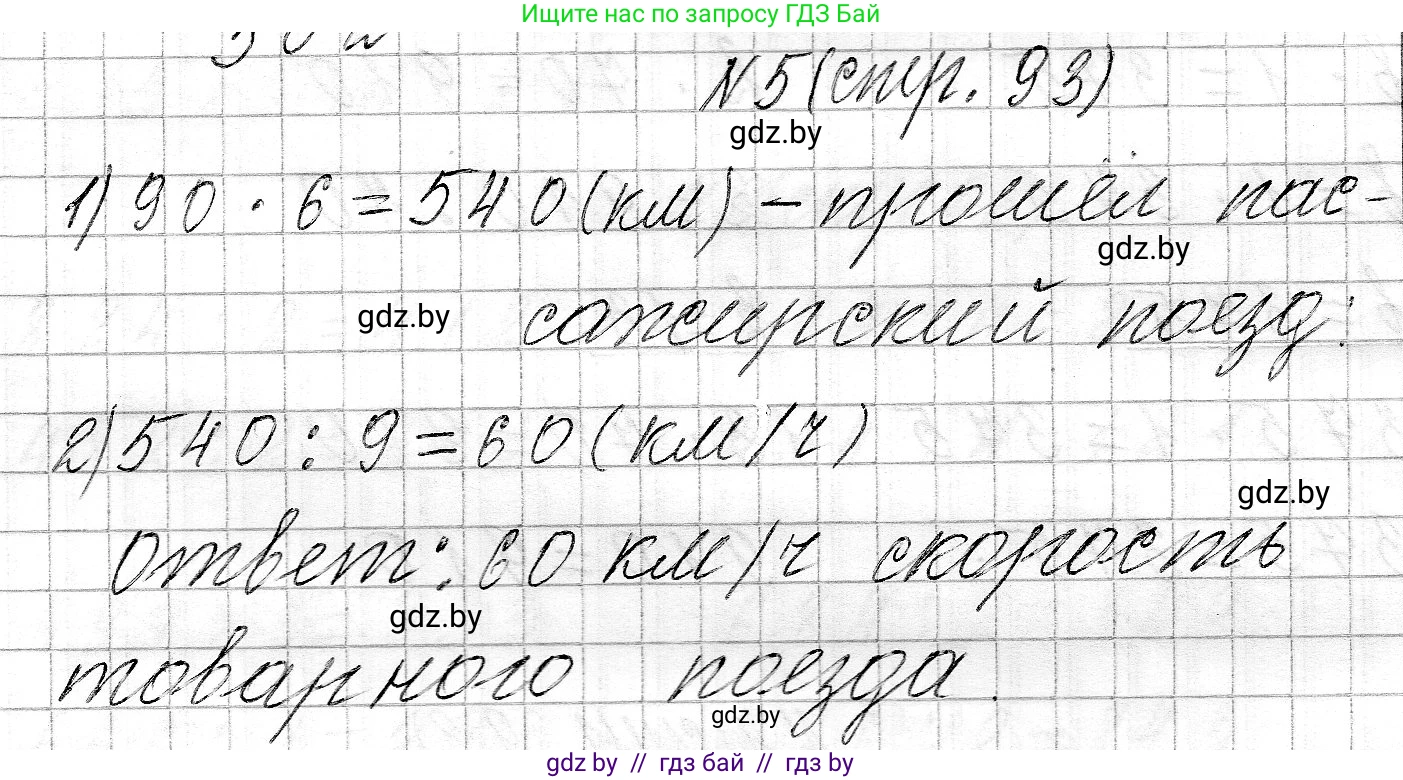 Ищите нас по запросу ГДЗ Бай
N5(стр. 93)
gdz.by
1) 90 · 6 = 540 (км) - прошёл пас-
gdz.by
gdz.by
сажирский поезд.
2) 540 : 9 = 60 (км/ч)
gdz.by
ответ: 60 км/ч скорость
gdz.by
товарного поезда.
gdz.by
gdz by // гдз бай // гдз by